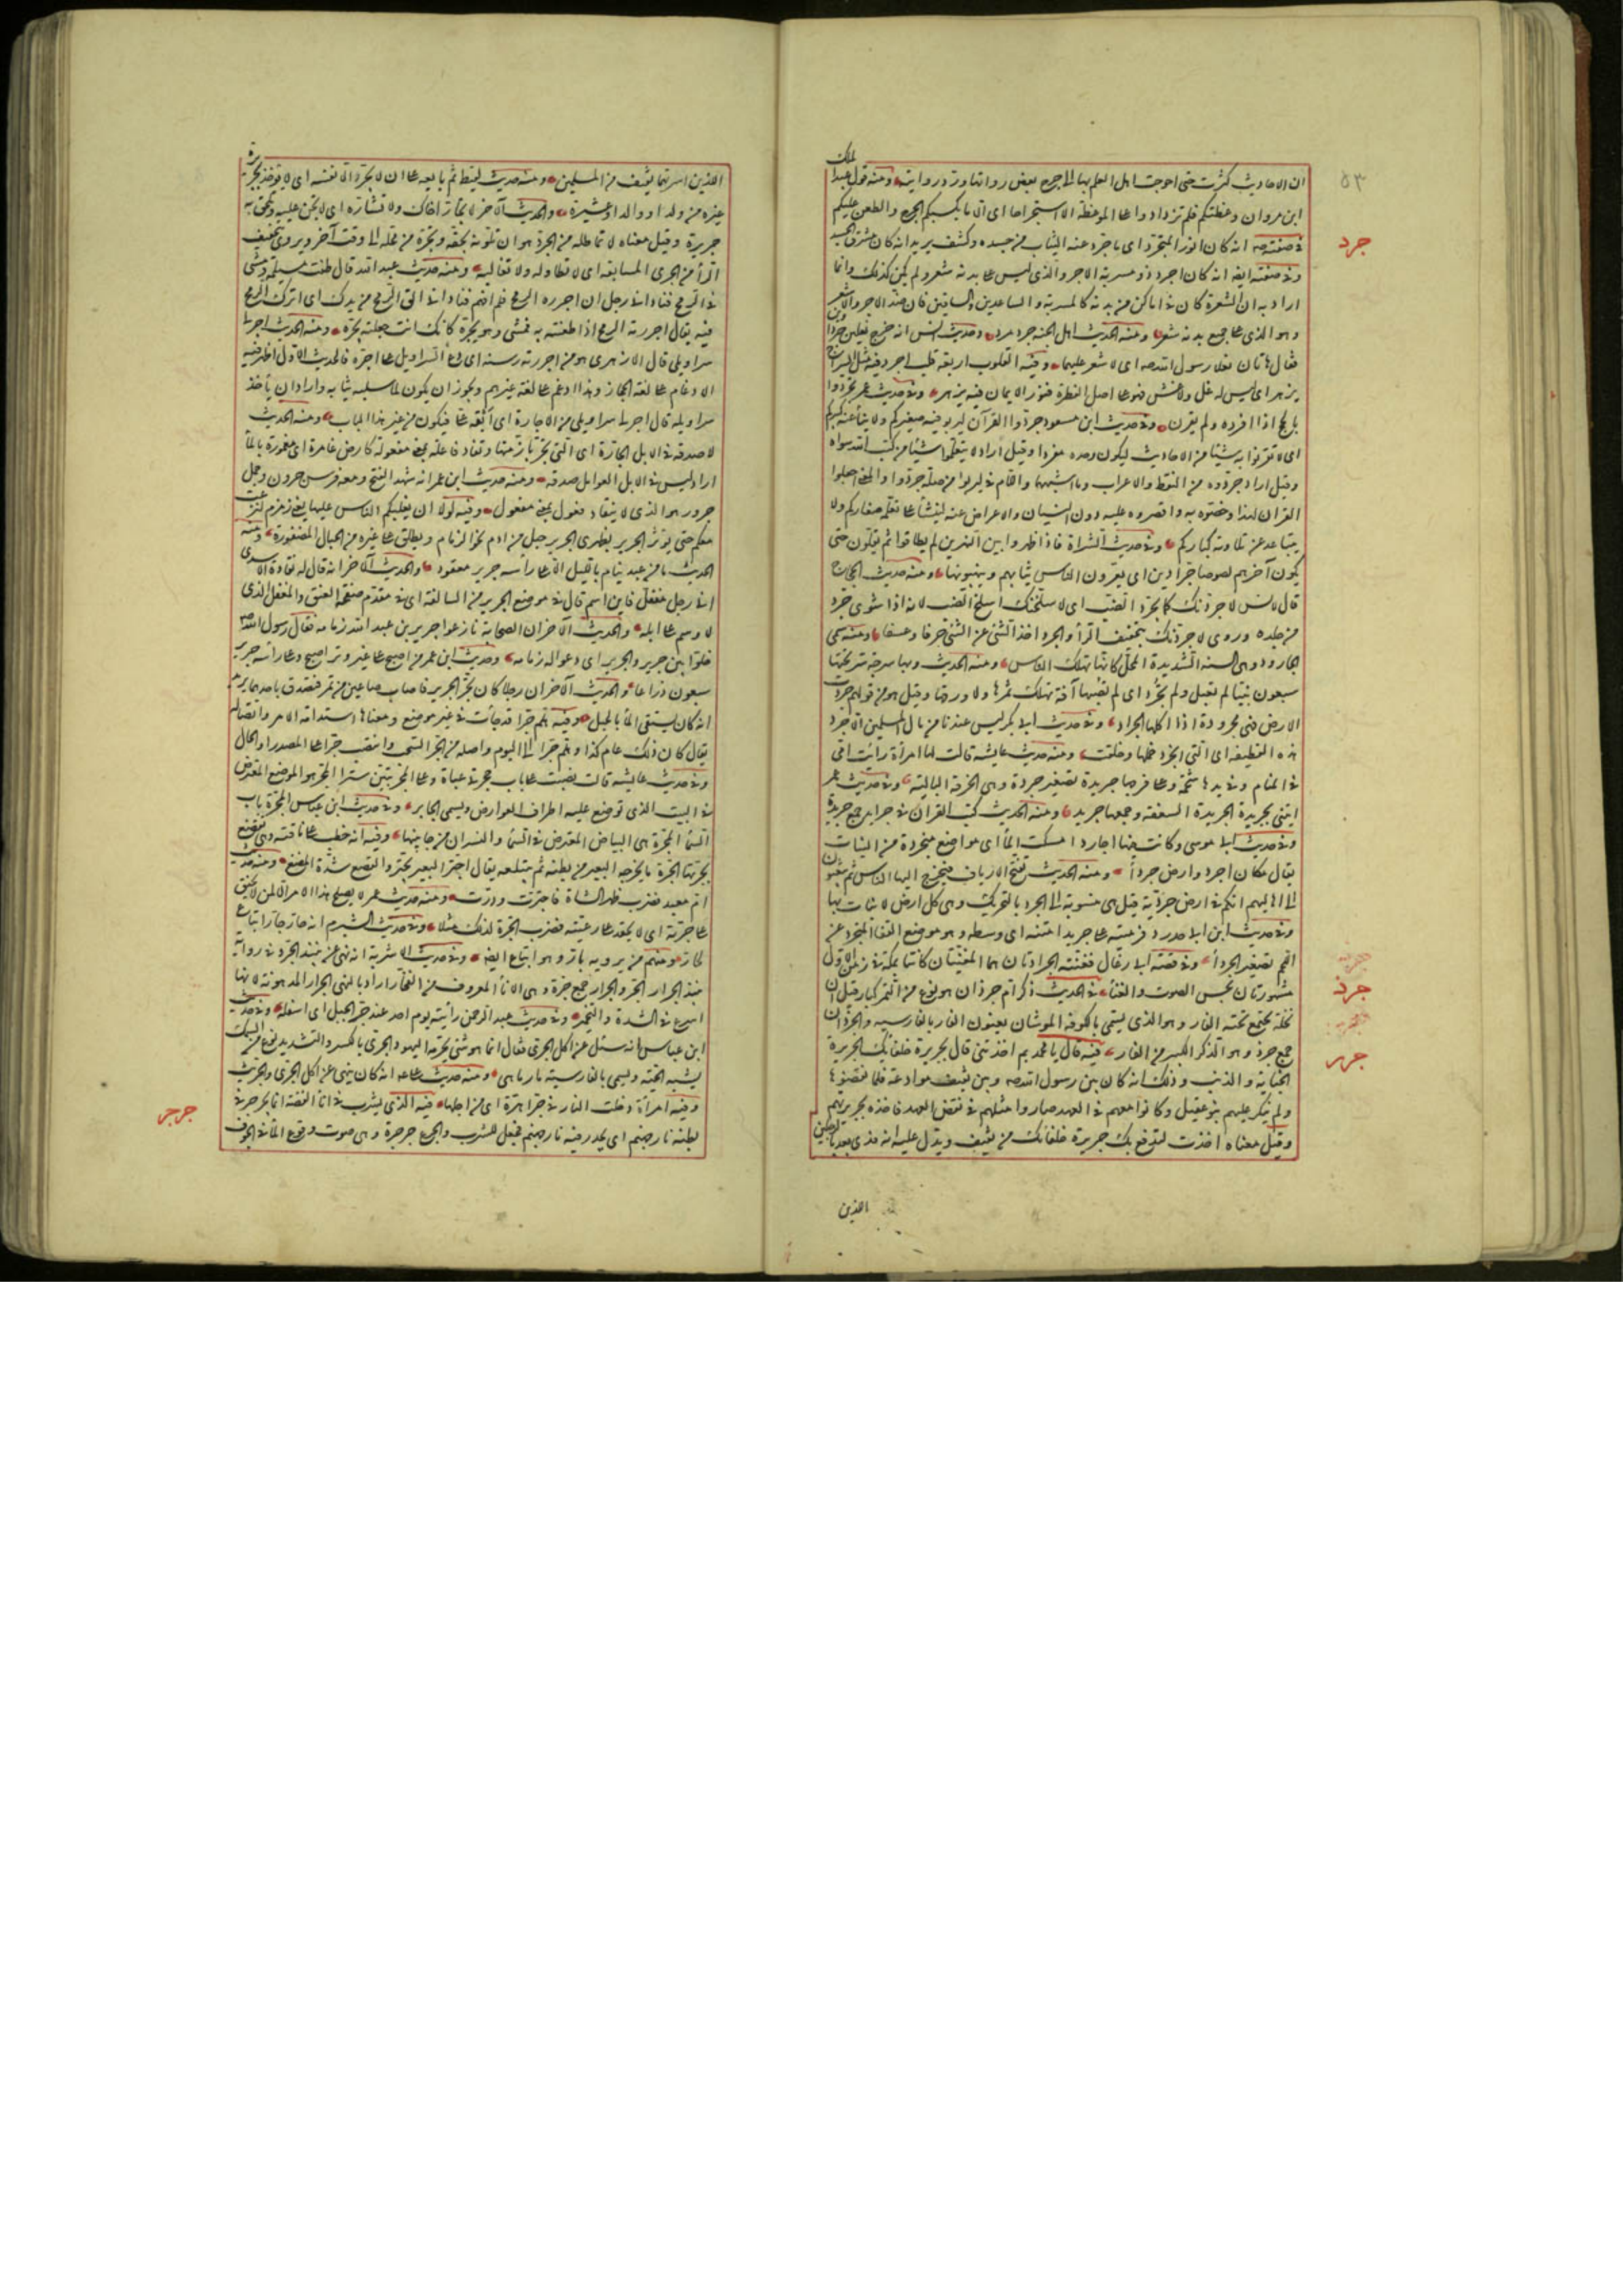 ٥٣
ان الاحاديث كثرت حتى احوجت اهل العلم بها الى جرح بعض رواتها ورد روايته ومنه قول عبد الملك
ابن مروان وعظتكم فلم تزدادوا على الموعظة الا استجراحا اى الا ما يكسبكم الجرح والطعن عليكم
جرد
فى صفته صم انه كان انور المتجرد اى ما جرد عنه الثياب من جسده وكشف يريد انه كان مشرق الجسد
وفى صفته ايضا انه كان اجرد ذو مسربة الاجرد الذى ليس على بدنه شعر ولم يكن كذلك وانما
اراد به ان الشعرة كان فى اماكن من بدنه كالمسربة والساعدين والساقين فان ضد الاجرد الاشعر
وهو الذى على جميع بدنه شعر ومنه الحديث اهل الجنة جرد مرد وحديث انس انه خرج نعلين جرداوين
فقال هاتان نعلا رسول الله صم اى لا شعر عليهما وفيه القلوب اربعة قلب اجرد فيه مثل السراج
يزهر اى ليس له غل ولا غش فهو على اصل الفطرة فنور الايمان فيه يزهر وفى حديث عمر تجردوا
بالحج اذا افرده ولم يقرن وفى حديث ابن مسعود جردوا القرآن ليربو فيه صغيركم ولا يناى عنه كبيركم
اى لا تقرنوا به شيئا من الاحاديث ليكون وحده مفردا وقيل اراد لا يتعلموا شيئا من كتب الله سواه
وقيل اراد جردوه من النقط والاعراب وما اشبههما واللام فى ليربو من صلة جردوا والمعنى اجعلوا
القرآن لهذا وخصوه به واقصروه عليه دون النسيان والاعراض عنه لينشا على تعلمه صغاركم ولا
يتباعد عن تلاوته كباركم وفى حديث الشراة فاذا ظهروا بين النهرين لم يطاقوا ثم يقلون حتى
يكون آخرهم لصوصا جرادين اى يعرون الناس ثيابهم وينهبونها ومنه حديث الحجاج
قال لانس لاجردنك كما يجرد الضب اى لاسلخنك سلخ الضب لانه اذا شوى جرد
من جلده وروى لاجردنك بتخفيف الرا والجرد اخذ الشئ عن الشئ جرفا وعسفا ومنه سمى
الجارود وهى السنة الشديدة المحل كانها تهلك الناس ومنه الحديث وبها سرحة سر تحتها
سبعون نبيا لم تعبل ولم تجرد اى لم تصبها آفة تهلك ثمرها ولا ورقها وقيل هو من قولهم جردت
الارض فهى مجرودة اذا اكلها الجراد وفى حديث ابى بكر ليس عندنا من مال المسلمين الا جرد
هذه القطيفة اى التى انجرد خملها وخلقت ومنه حديث عايشة قالت لها امرأة رأيت امى
فى المنام وفى يدها شحمة وعلى فرجها جريدة تصغير جردة وهى الخرقة البالية وفى حديث عمر
ايتنى بجريدة الجريدة السعفة وجمعها جريد ومنه الحديث كتب القرآن فى جرايد جمع جريدة
وفى حديث ابى موسى وكانت فيها اجارد امسكت الماء اى مواضع منجردة من النبات
يقال مكان اجرد وارض جرداء ومنه الحديث تفتح الارياف فيخرج اليها الناس ثم يبعثون
الى اهاليهم انكم فى ارض جردية قيل هى منسوبة الى الجرد بالتحريك وهى كل ارض لا نبات بها
وفى حديث ابن ابى حدرد فرميته على جريداء متنه اى وسطه وهو موضع القفا المتجرد عن
اللحم تصغير الجرداء وفى قصة ابى رغال فغنته الجرادتان هما المغنيتان كانتا بمكة فى زمن الاول
مشهورتان بحسن الصوت والغناء
جرذ
فى الحديث ذكر ام جرذان هو نوع من التمر كبار قيل ان
نخله يجتمع تحته الفار وهو الذى يسمى بالكوفة الموشان يعنون الفار بالفارسية والجرذان
جمع جرذ وهو الذكر الكبير من الفار
جرر
فيه قال يا محمد بم اخذتنى قال بجريرة حلفائك الجريرة
الجناية والذنب وذلك انه كان بين رسول الله صم وبين ثقيف موادعة فلما نقضوها
ولم ينكر عليهم بنو عقيل وكانوا معهم فى العهد صاروا مثلهم فى نقض العهد فاخذه بجريرتهم
وقيل معناه اخذت لتدفع بك جريرة حلفائك من ثقيف ويدل عليه انه فدى بعد بالرجلين
الذين
الذين اسرتهما ثقيف من المسلمين ومنه حديث لقيط ثم بايعه على ان لا يجر الا نفسه اى لا يؤخذ بجريرة
غيره من ولد او والد او عشيرة والحديث الآخر لا تجار اخاك ولا تشاره اى لا تجن عليه وتلحق به
جريرة وقيل معناه لا تماطله من الجر وهو ان تلويه بحقه وتجره من محله الى وقت آخر ويروى بتخفيف
الرا من الجرى المسابقة اى لا تطاوله ولا تغالبه ومنه حديث عبد الله قال طعنت مسيلمة ومشى
فى الرمح فنادانى رجل ان اجرره الرمح فلم افهم فنادانى الق الرمح من يدك اى اترك الرمح
فيه يقال اجررته الرمح اذا طعنته به فمشى وهو يجره كانك انت جعلته يجره ومنه الحديث اجر لى
سراويلى قال الازهرى هو من اجررته رسنه اى دع السراويل على اجره فالحديث الاول اظهر فيه
الادغام على لغة الحجاز وهذا ادغم على لغة غيرهم ويجوز ان يكون لما سلبه ثيابه واراد ان ياخذ
سراويله قال اجر لى سراويلى من الاجارة اى ابقه على فيكون من غير هذا الباب ومنه الحديث
لا صدقة فى الابل الجارة اى التى تجر بازمتها وتقاد فاعلة بمعنى مفعولة كارض غامرة اى مغمورة بالماء
اراد ليس فى الابل العوامل صدقة ومنه حديث ابن عمر انه شهد الفتح ومعه فرس حرون وجمل
جرور هو الذى لا ينقاد فعول بمعنى مفعول وفيه لولا ان يغلبكم الناس عليها يعنى زمزم لنزعت
معكم حتى يؤثر الجرير بظهرى الجرير حبل من ادم نحو الزمام ويطلق على غيره من الحبال المضفورة ومنه
الحديث ما من عبد ينام بالليل الا على رأسه جرير معقود والحديث الآخر انه قال له نقادة الاسدى
انى رجل مغفل فاين اسم قال فى موضع الجرير من السالفة اى فى مقدم صفحة العنق والمغفل الذى
لا وسم على ابله والحديث الآخر ان الصحابة نازعوا جرير بن عبد الله زمامه فقال رسول الله صم
خلوا بين جرير والجرير اى دعوا له زمامه وحديث ابن عمر من اصبح على غير وتر اصبح وعلى رأسه جرير
سبعون ذراعا والحديث الآخر ان رجلا كان يجر الجرير فاصاب صاعين من تمر فتصدق باحدهما يريد
انه كان يستقى الماء بالحبل وفيه هلم جرا قد جاءت فى غير موضع ومعناها استدامة الامر واتصاله
يقال كان ذلك عام كذا وهلم جرا الى اليوم واصله من الجر السحب وانتصب جرا على المصدر او الحال
وفى حديث عايشة قالت نصبت على باب حجرتى عباة وعلى مجر بيتى سترا المجر هو الموضع المعترض
فى البيت الذى توضع عليه اطراف العوارض ويسمى الجايز وفى حديث ابن عباس المجرة باب
السماء المجرة هى البياض المعترض فى السماء والنسران من جانبيها وفيه انه خطب على ناقته وهى تقصع
بجرتها الجرة ما يخرجه البعير من بطنه ثم يبتلعه يقال اجتر البعير يجتر والقصع شدة المضغ ومنه حديث
ام معبد فضرب ظهر الشاة فاجترت ودرت ومنه حديث عمر لا يصلح هذا الامر الا لمن لا يحنق
على جرته اى لا يحقد على رعيته فضرب الجرة لذلك مثلا وفى حديث الشبرم انه حار جار اتباع
لحار ومنهم من يرويه يار وهو اتباع ايضا وفى حديث الاشربة انه نهى عن نبيذ الجر وفى رواية
نبيذ الجرار الجر والجرار جمع جرة وهى الاناء المعروف من الفخار اراد بالنهى الجرار المدهونة لانها
اسرع فى الشدة والتخمير وفى حديث عبد الرحمن رأيته يوم احد عند جر الجبل اى اسفله وفى حديث
ابن عباس انه سئل عن اكل الجرى فقال انما هو شئ تحرمه اليهود الجرى بالكسر والتشديد نوع من السمك
يشبه الحية ويسمى بالفارسية مارماهى ومنه حديث على انه كان ينهى عن اكل الجرى والجريث
وفيه امرأة دخلت النار فى جرا هرة اى من اجلها
جرجر
فيه الذى يشرب فى اناء الفضة انما يجرجر فى
بطنه نار جهنم اى يحدر فيه نار جهنم فجعل للشرب والجرع جرجرة وهى صوت وقوع الماء فى الجوف